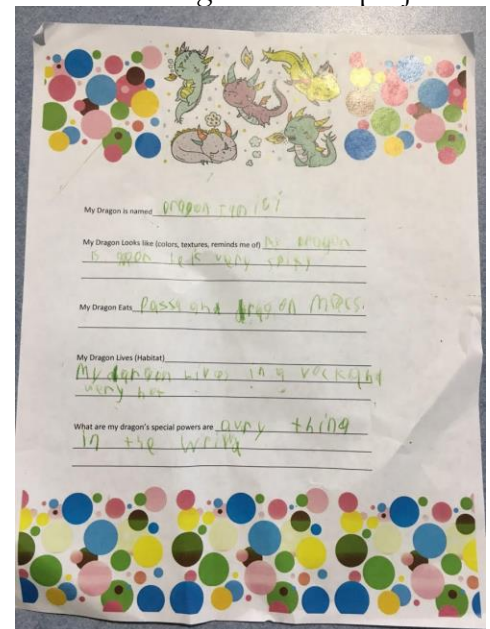 My Dragon is named Dragon
My Dragon Looks like (colors, textures, reminds me of) my dragon
is green he is very spiky
My Dragon Eats Passy and dragon
My Dragon Lives (Habitat)
My dangen lives in a
very hot
What are my dragon's special powers are avry thing
in the wrild